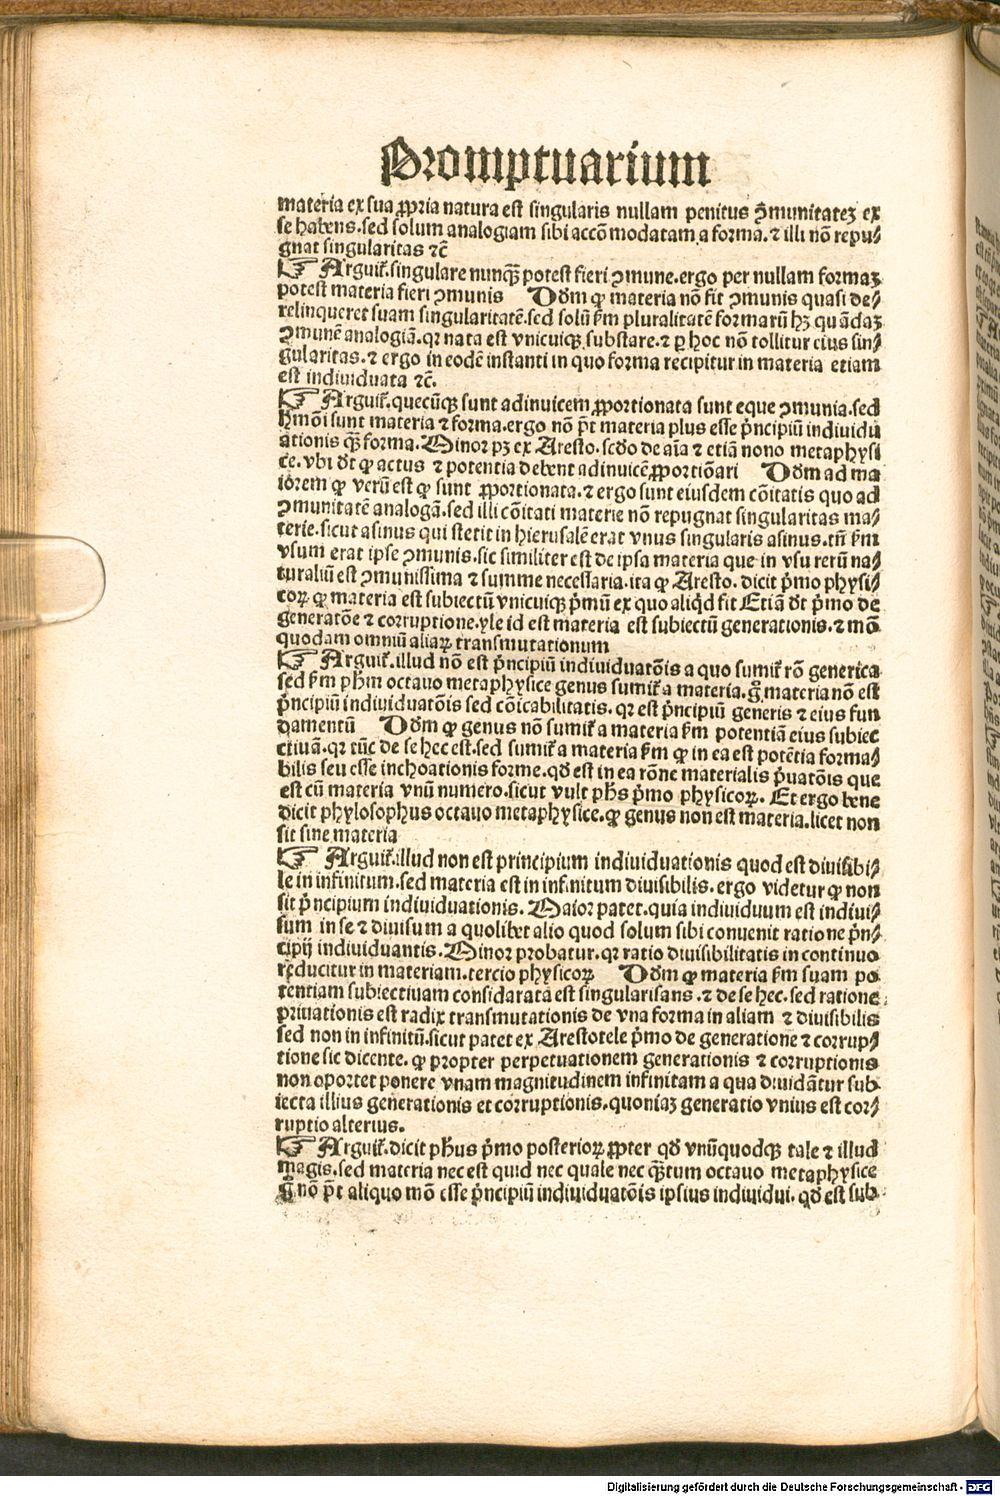 Promptuarium
materia ex sua ꝓpria natura est singularis nullam penitus ꝯ̄munitateꝫ ex
se habens.sed solum analogiam sibi accōmodatam a forma.⁊ illi nō repu⸗
gnat singularitas ⁊c̄
☞ Arguit̃.singulare nunqꝫ̄ potest fieri ꝯmune.ergo per nullam formaꝫ
potest materia fieri ꝯmunis Dd̄m ꝙ materia nō fit ꝯmunis quasi de⸗
relinqueret suam singularitatē.sed solū ẜm pluralitatē formarū hꝫ quādaꝫ
ꝯmunē analogiā.qꝛ nata est vnicuiqꝫ substare.⁊ ꝑ hoc nō tollitur eius sin⸗
gularitas.⁊ ergo in eodē instanti in quo forma recipitur in materia etiam
est indiuiduata ⁊c̄.
☞ Arguit̃.quecūqꝫ sunt adinuicem ꝓportionata sunt eque ꝯmunia.sed
hm̄ōi sunt materia ⁊ forma.ergo nō pt̄ materia plus esse p̄ncipiū indiuidu
ationis qꝫ̄ forma.Minor pꝫ ex Aresto.scd̄o de aīa ⁊ etiā nono metaphysi
ce.vbi dt̄ ꝙ actus ⁊ potentia debent adinuicē ꝓportiōari Dd̄m ad ma
iorem ꝙ verū est ꝙ sunt ꝓportionata.⁊ ergo sunt eiusdem cōitatis quo ad
ꝯmunitatē analogā.sed illi cōitati materie nō repugnat singularitas ma⸗
terie.sicut asinus qui stetit in hierusalē erat vnus singularis asinus.tn̄ ẜm
vsum erat ipse ꝯmunis.sic similiter est de ipsa materia que in vsu rerū na⸗
turaliū est ꝯmunissima ⁊ summe necessaria.ita ꝙ Aresto. dicit p̄mo physi⸗
coꝝ ꝙ materia est subiectū vnicuiqꝫ p̄mū ex quo aliqd̓ fit Etiā dt̄ p̄mo de
generatōe ⁊ corruptione.yle id est materia est subiectū generationis.⁊ mō
quodam omniū aliaꝝ transmutationum
☞ Arguit̃.illud nō est p̄ncipiū indiuiduatōis a quo sumit̃ rō generica
sed ẜm ph̄m octauo metaphysice genus sumit̃ a materia.g̊ materia nō est
p̄ncipiū indiuiduatōis sed cōicabilitatis. qꝛ est p̄ncipiū generis ⁊ eius fun
damentū Dd̄m ꝙ genus nō sumit̃ a materia ẜm potentiā eius subiec
ctiuā.qꝛ tūc de se hec est.sed sumit̃ a materia ẜm ꝙ in ea est potētia forma⸗
bilis seu esse inchoationis forme.qd̓ est in ea rōne materialis p̄uatōis que
est cū materia vnū numero.sicut vult ph̄s p̄mo physicoꝝ. Et ergo bene
dicit phylosophus octauo metaphysice.ꝙ genus non est materia.licet non
sit sine materia
☞ Arguit̃.illud non est principium indiuiduationis quod est diuisibi⸗
le in infinitum.sed materia est in infinitum diuisibilis.ergo videtur ꝙ non
sit p̄ncipium indiuiduationis. Maior patet.quia indiuiduum est indiui⸗
sum in se ⁊ diuisum a quolibet alio quod solum sibi conuenit ratione p̄n⸗
cipij indiuiduantis.Minor probatur.qꝛ ratio diuisibilitatis in continuo
reducitur in materiam.tercio physicoꝝ Dd̄m ꝙ materia ẜm suam po
tentiam subiectiuam considarata est singularisans.⁊ de se hec.sed ratione
priuationis est radix transmutationis de vna forma in aliam ⁊ diuisibilis
sed non in infinitū.sicut patet ex Arestotele p̄mo de generatione ⁊ corrup⸗
tione sic dicente.ꝙ propter perpetuationem generationis ⁊ corruptionis
non oportet ponere vnam magnitudinem infinitam a qua diuidātur sub⸗
iecta illius generationis et corruptionis.quoniaꝫ generatio vnius est cor⸗
ruptio alterius.
☞ Arguit̃.dicit ph̄us p̄mo posterioꝝ ꝓpter qd̓ vnūquodqꝫ tale ⁊ illud
magis.sed materia nec est quid nec quale nec qꝫ̄tum octauo metaphysice
g̊ nō pt̄ aliquo mō esse p̄ncipiū indiuiduatōis ipsius indiuidui.qd̓ est sub⸗
Digitalisierung gefördert durch die Deutsche Forschungsgemeinschaft - DFG